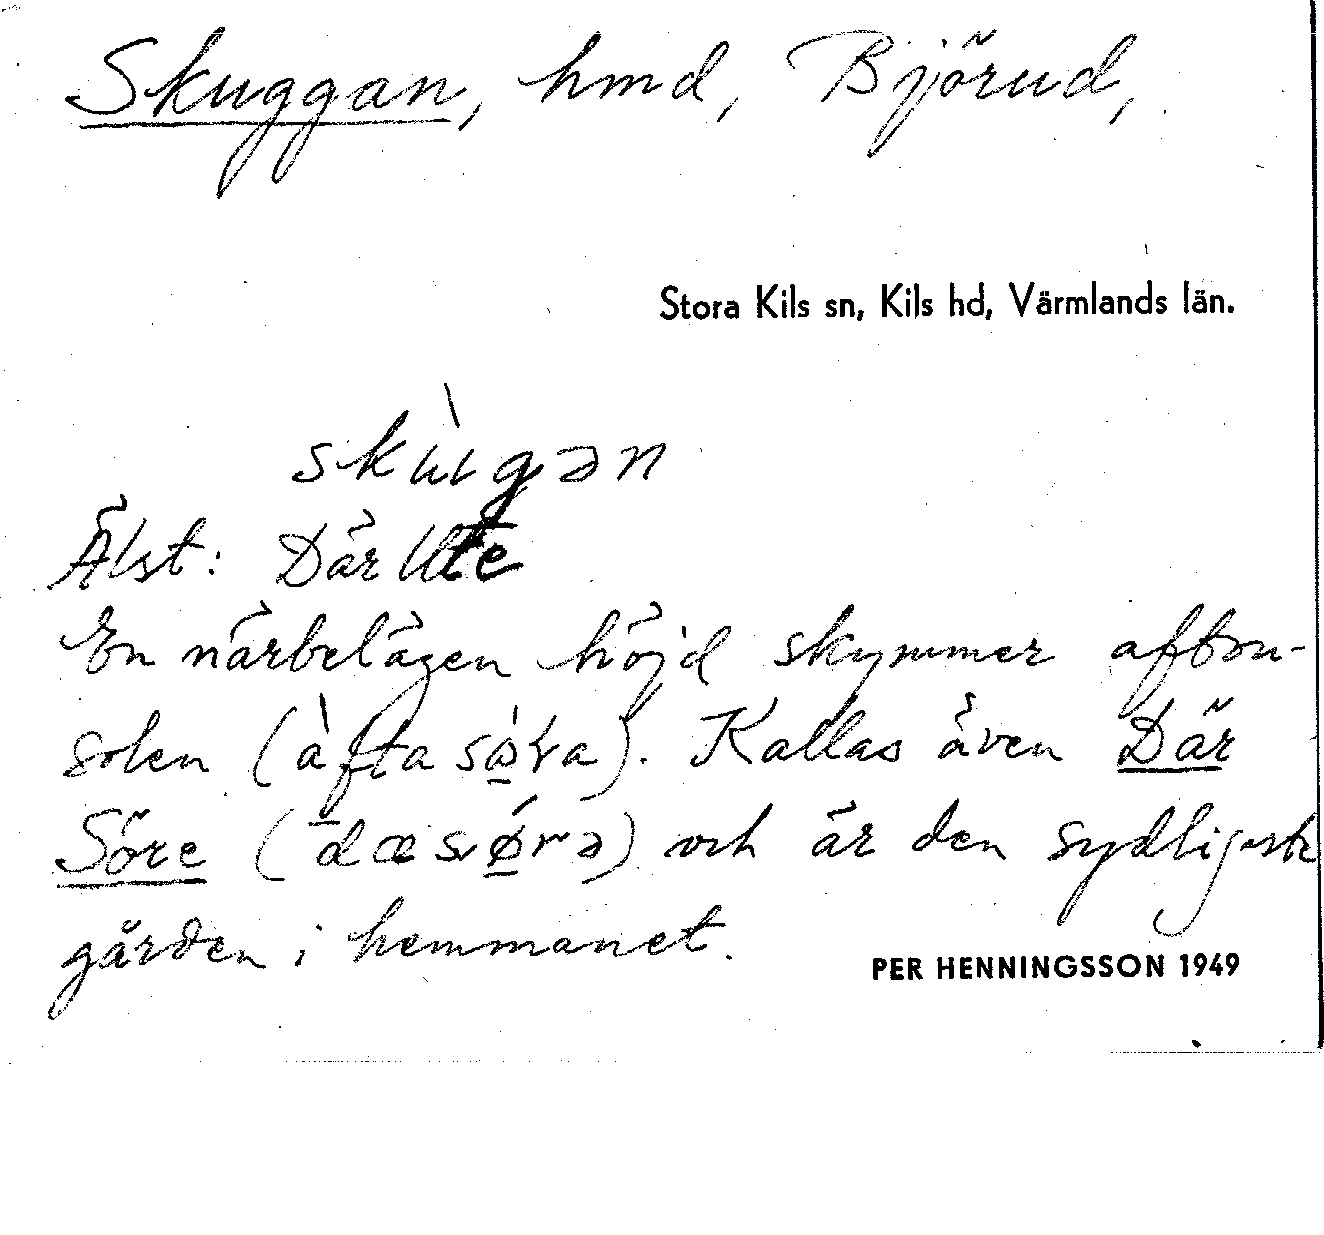 Skuggan, hmd, Björud,
Stora Kils sn, Kils hd, Värmlands län.
skùgən
Älst: Där Ute
En närbelägen höjd skymmer afton-
solen (àftasó̱ɽa). Kallas även Där
Söre (dæsǿ̱rə) och är den sydligaste
gården i hemmanet.
PER HENNINGSSON 1949